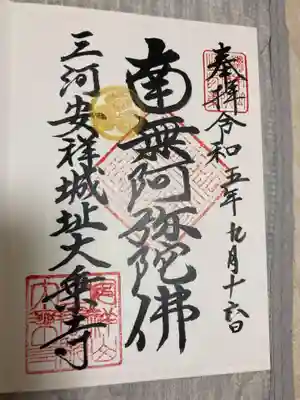 奉拝令和五年九月十六日
南無阿弥陀佛
三河安祥城址大乗寺